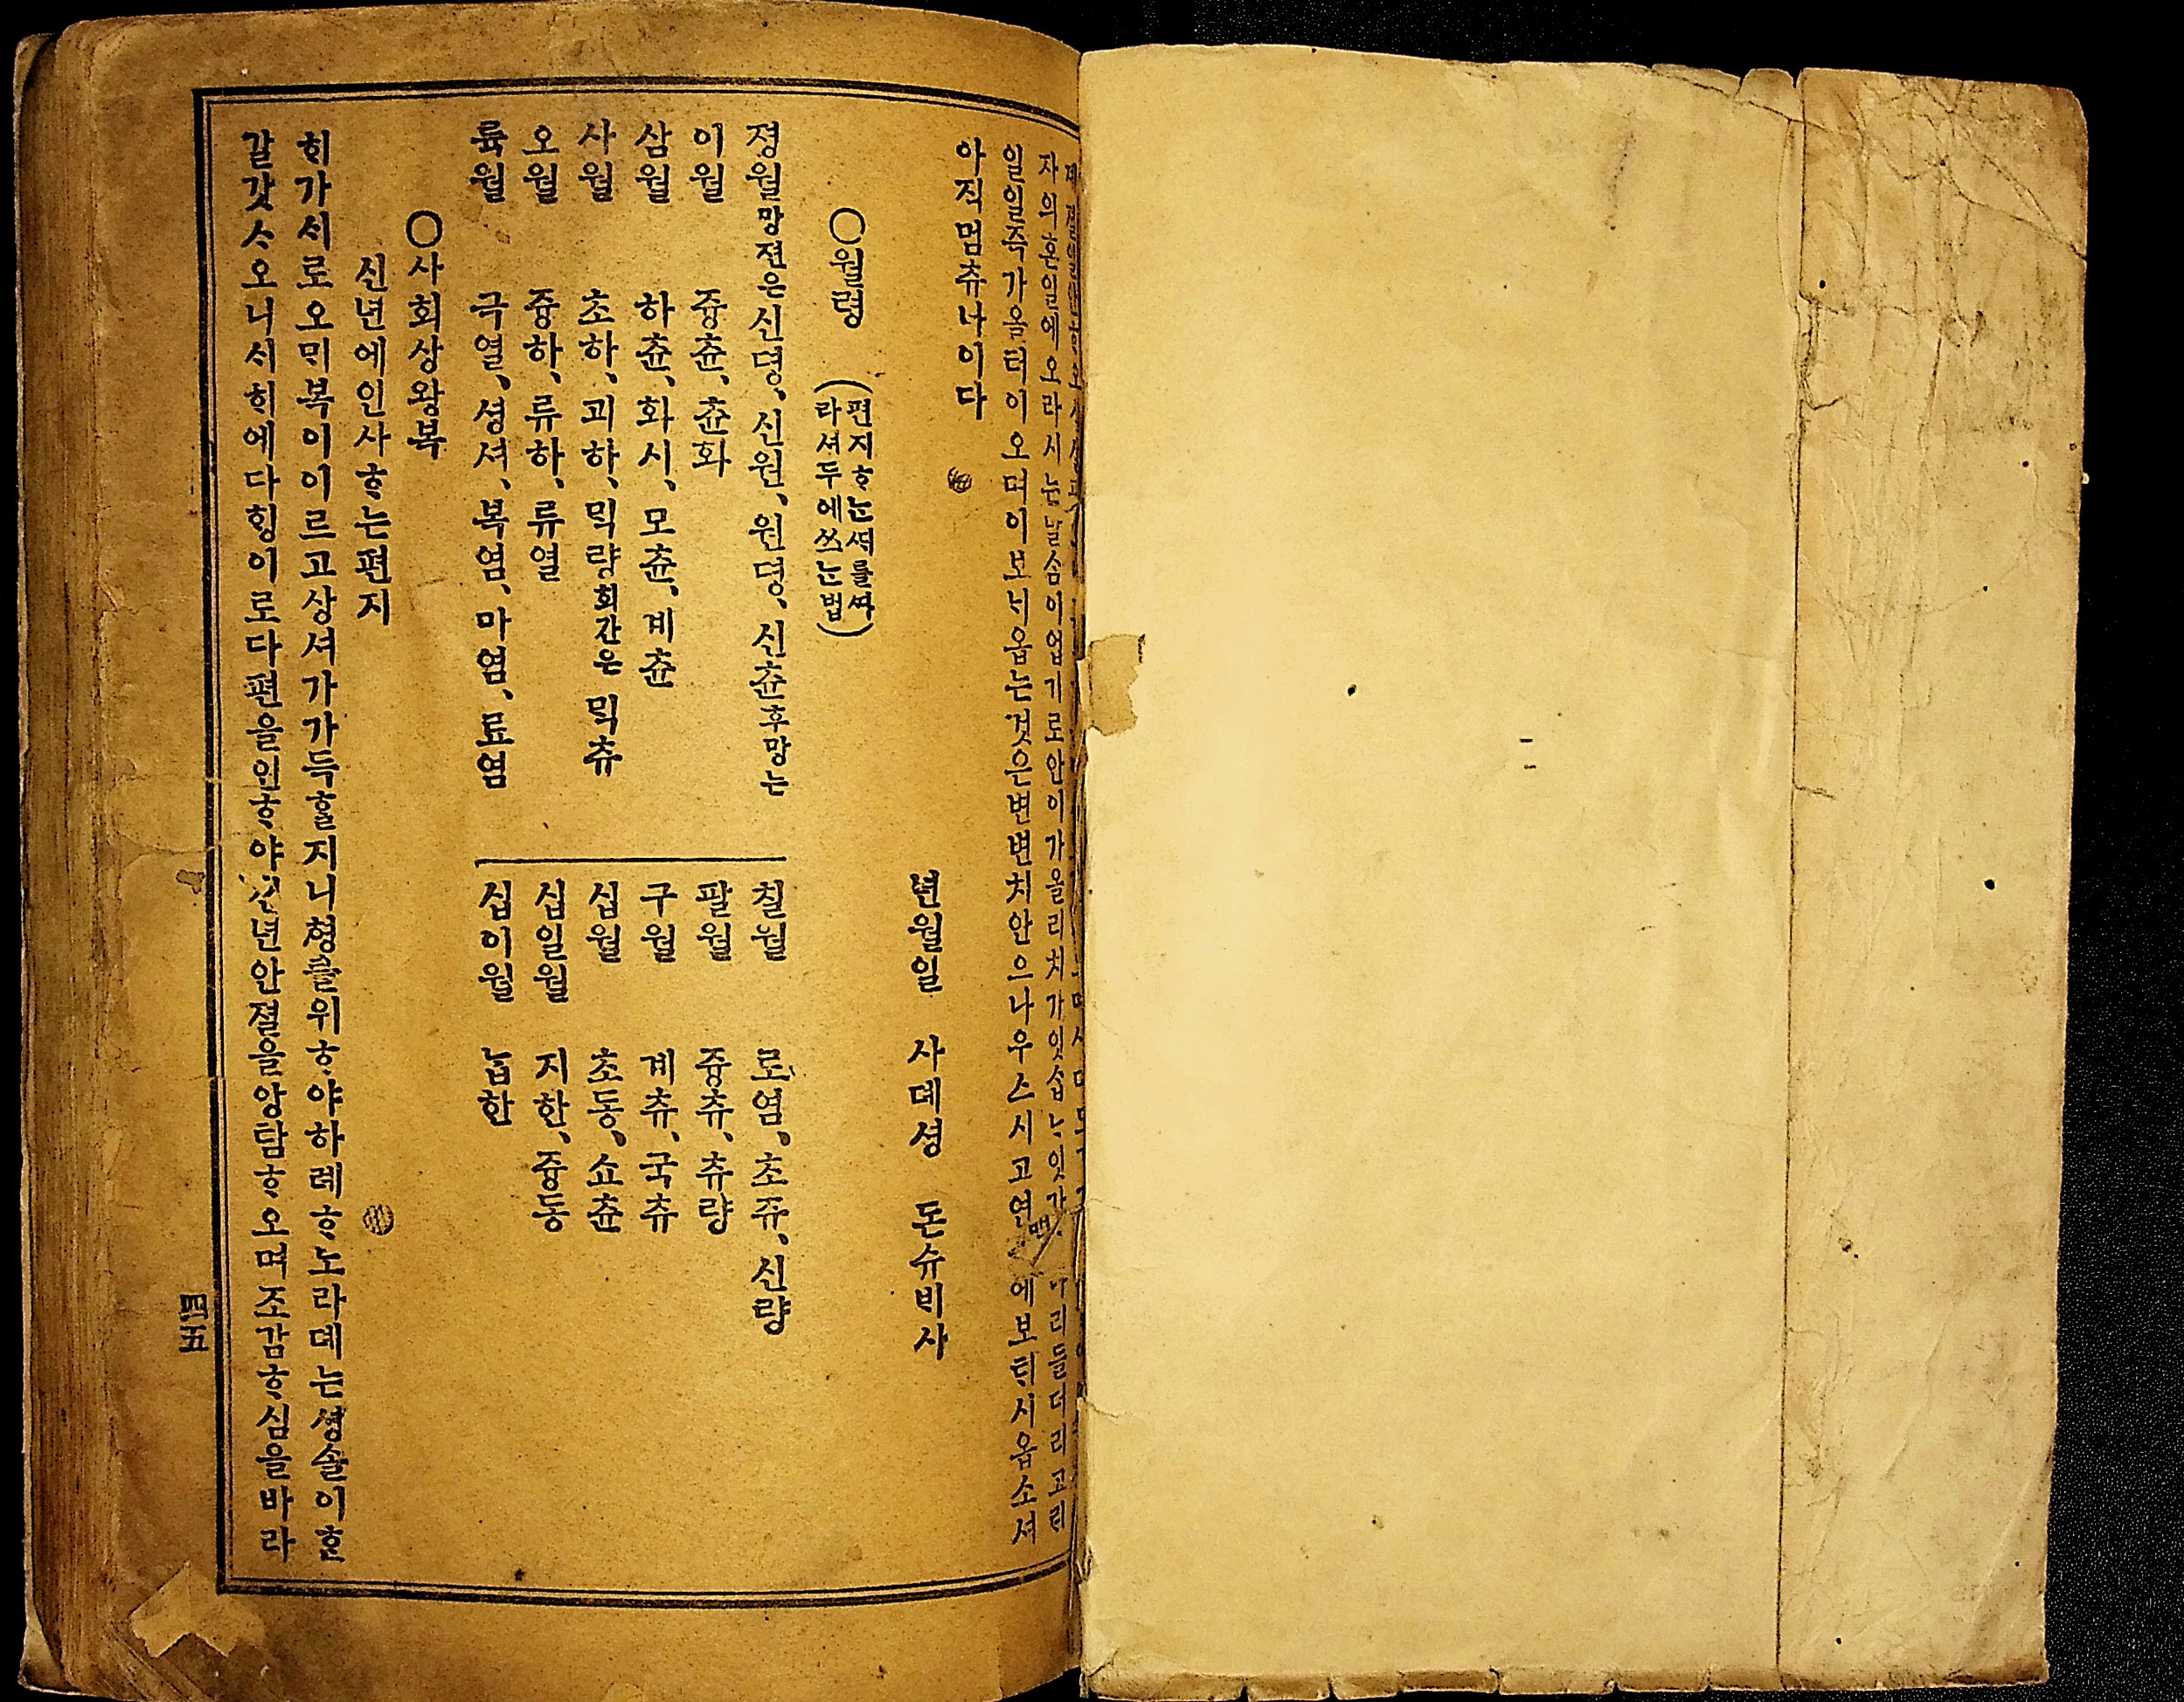 자의혼일에오라시는날솜이업기로안이가올리치가잇습ᄂᆞ잇가 아리들더리고ᄅᆡ
일일즉가올터이오며이보ᄂᆡ옵는것은변변치안으나우스시고연 에보ᄐᆡ시옵소셔
아직멈츄나이다
년월일 사뎨셩 돈슈ᄇᆡ사
○월령 (편지ᄒᆞ는ᄯᅢ를ᄯᅡ
라셔두에쓰는법)
졍월망젼은신뎡、신원、원뎡、신츈후망는
이월 즁츈、츈화
삼월 하츈、화시、모츈、계츈
사월 초하、괴하、ᄆᆡᆨ량회간은 ᄆᆡᆨ츄
오월 즁하、류하、류열
륙월 극열、셩셔、복염、마염、됴염
칠월 로염、초쥬、신량
팔월 즁츄、츄량
구월 계츄、국츄
십월 초동、쇼츈
십일월 지한、즁동
십이월 납한
○사회상왕복
신년에인사ᄒᆞ는편지
ᄒᆡ가ᄉᆡ로오ᄆᆡ복이이르고상셔가가득ᄒᆞᆯ지니형를위ᄒᆞ야하례ᄒᆞ노라뎨는셩솔이ᄒᆞᆫ
갈갓ᄉᆞ오니ᄉᆡᄒᆡ에다ᄒᆡᆼ이로다편을인ᄒᆞ야신년안졀을앙탐ᄒᆞ오며조감ᄒᆞ심을바라
四五